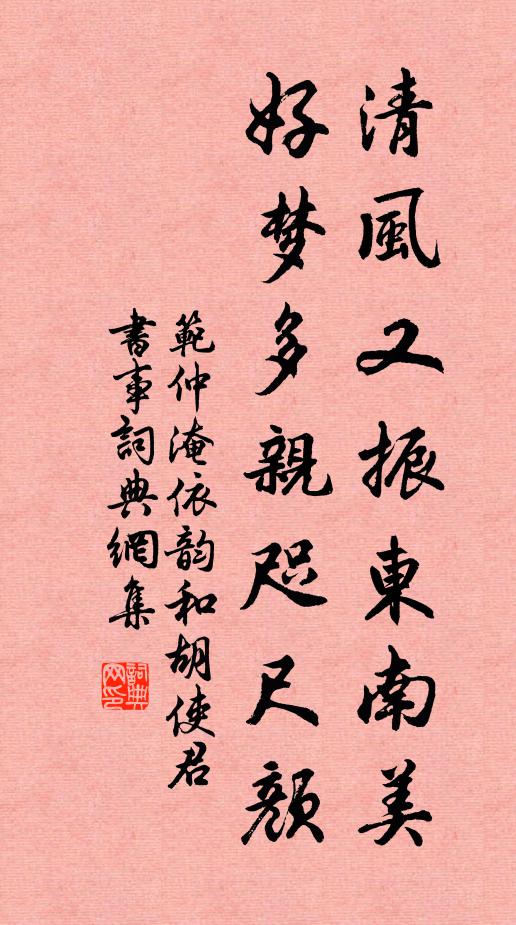 清風又振東南美
好梦多親咫尺顏
範仲淹依韵和胡使君
書事詞典網集
詞典網印